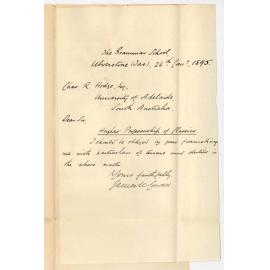 The Grammar School
Ulverstone (Tas), 26th Jany, 1895.
Chas. R. Hodge, Esq.,
University of Adelaide,
South Australia.
Dear Sir,
Hughes Professorship of Classics.
I should be obliged by your furnishing
me with particulars of tenure and duties in
the above matter.
Yours faithfully,